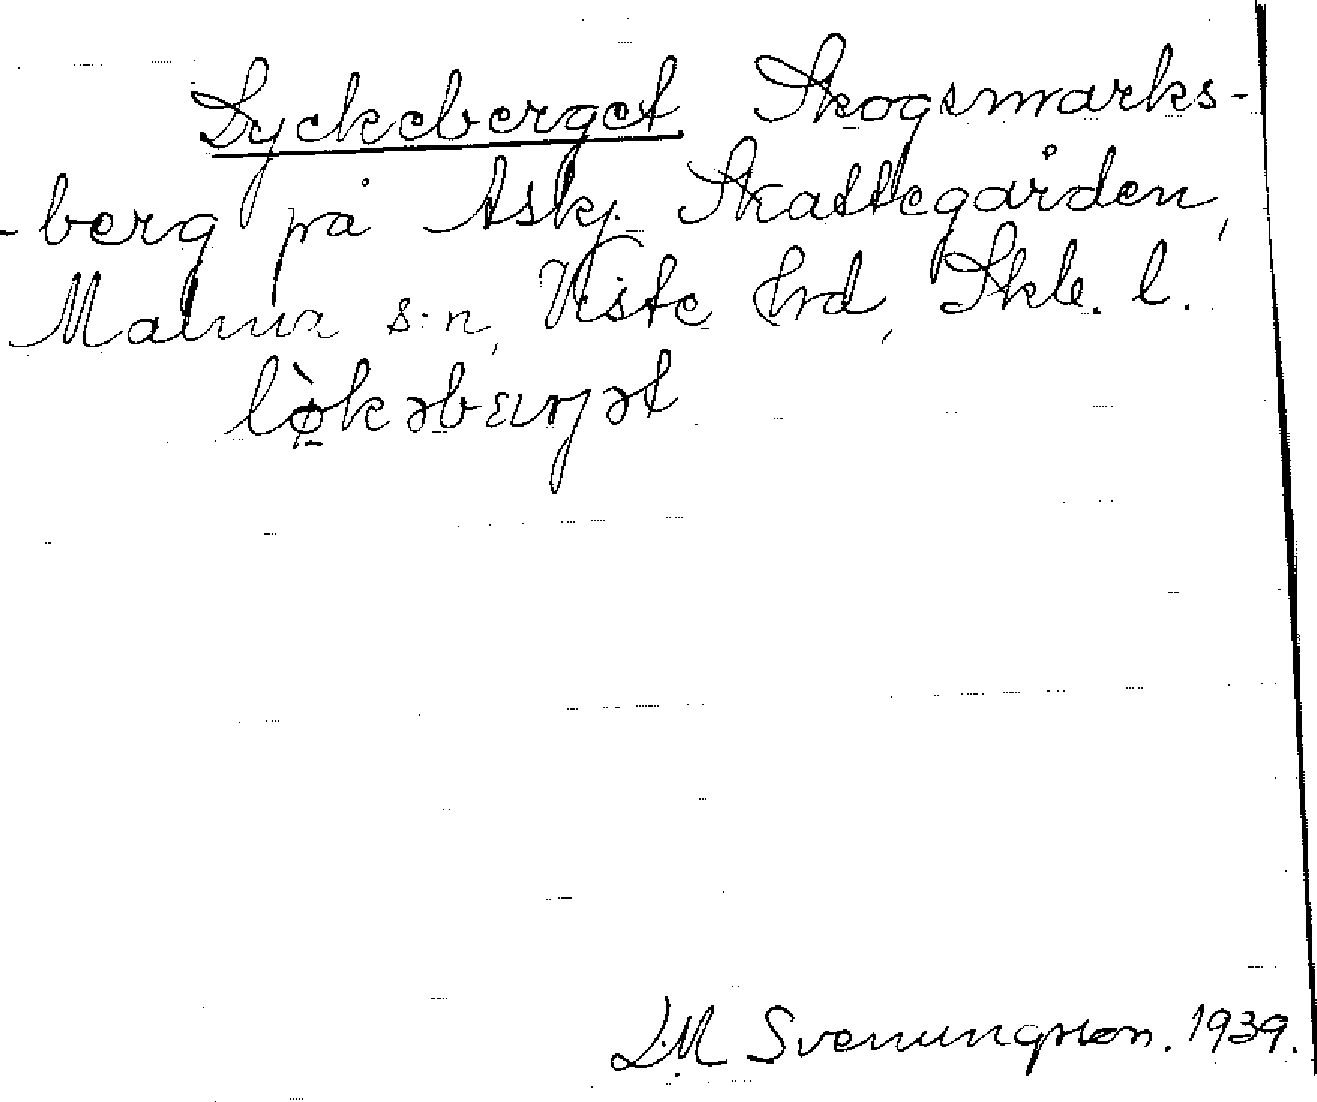 Lyckeberget Skogsmarks-
-berg på Askj. Skattegården,
Malma s:n, Viste hrd, Skb. l.
lø̀kəbærjət
L.M Svenungsson. 1939.